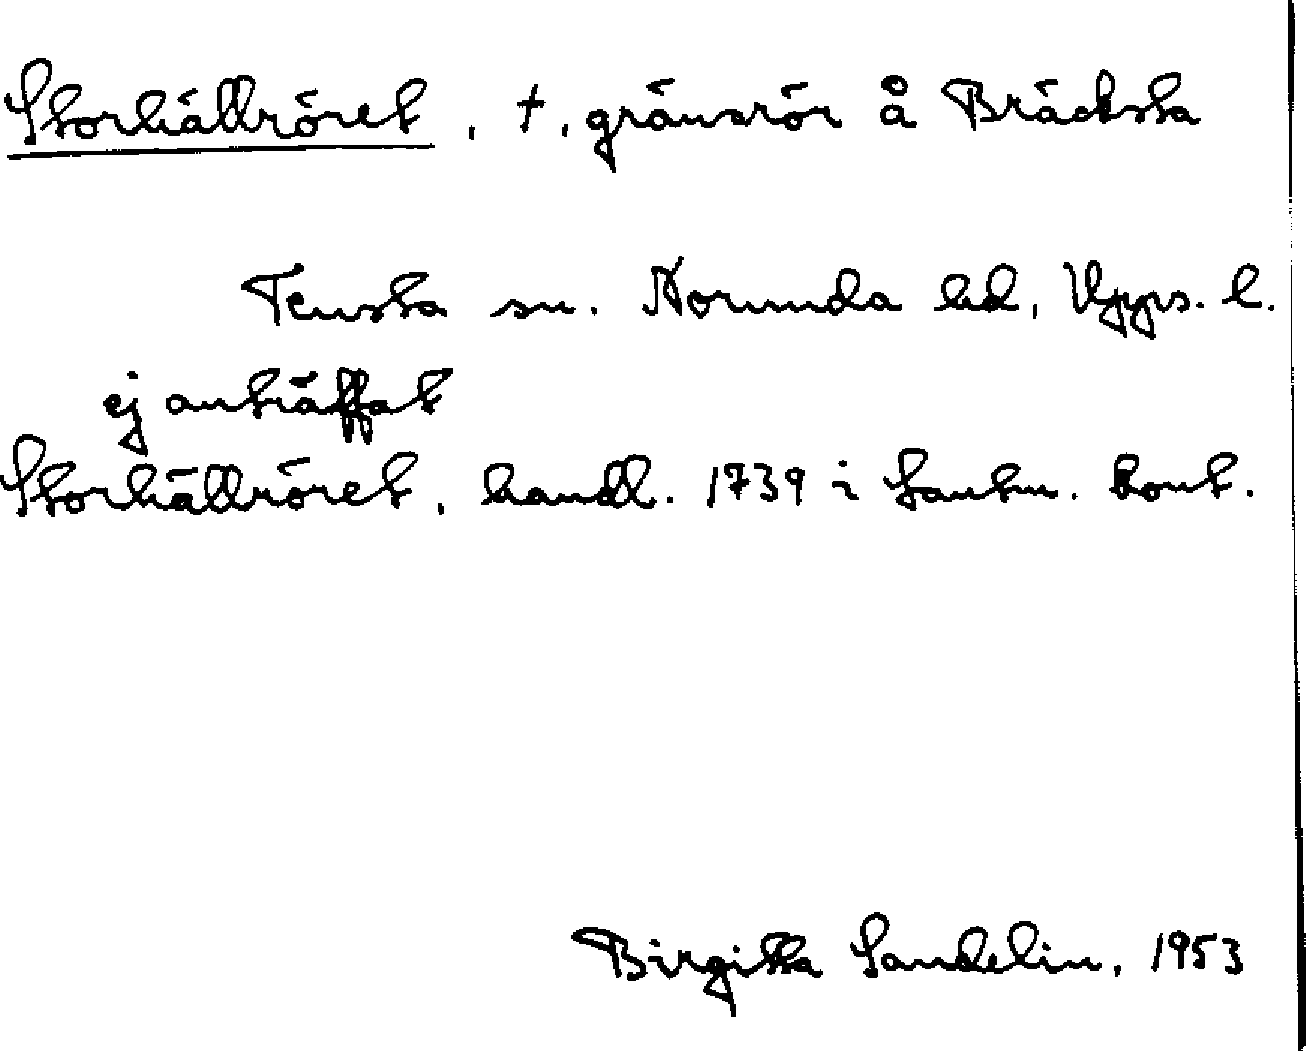 Storhällröret, †, gränsrör å Bräcksta
Tensta sn. Norunda hd, Upps. l.
ej anträffat
Storhällröret, handl. 1739 i Lantm. kont.
Birgitta Sandelin, 1953